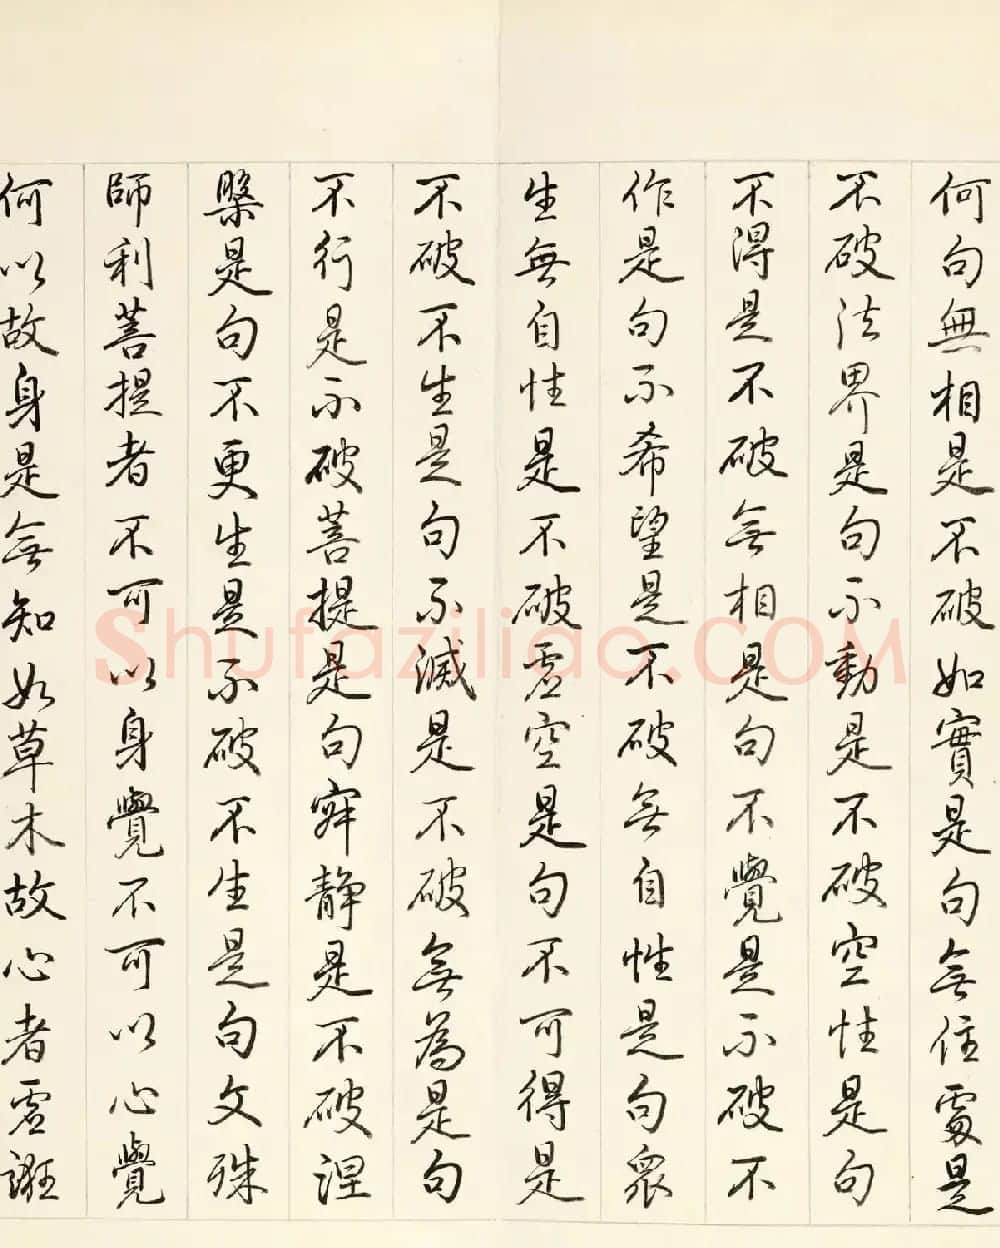 何句無相是不破如實是句無住處是
不破法界是句不動是不破空性是句
不得是不破無相是句不覺是不破不
作是句不希望是不破無自性是句衆
生無自性是不破虛空是句不可得是
不破不生是句不滅是不破無為是句
不行是不破菩提是句寂静是不破涅
槃是句不更生是不破不生是句文殊
師利菩提者不可以身覺不可以心覺
何以故身是無知如草木故心者虛誑
Shufaziliao.COM